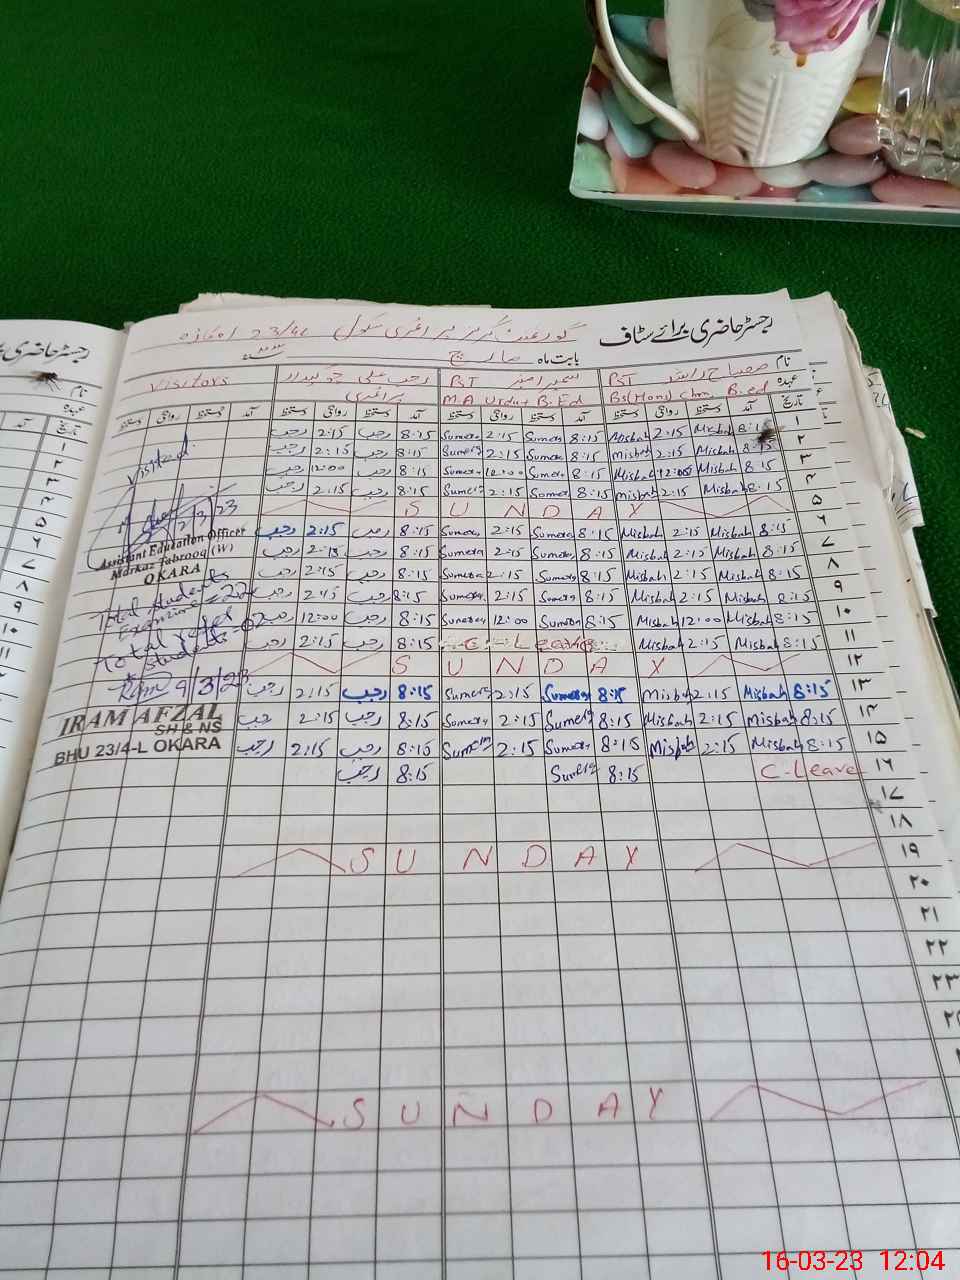 رجسٹر حاضری برائے سٹاف
گورنمنٹ گرلز پرائمری سکول 23/4L اوکاڑہ
بابت ماہ مارچ
نام
عہدہ
تاریخ
Visitors رجب علی چوکیدار PST PST
M.A Urdu + B.Ed Bs(Hons) Chm, B.ed
آمد دستخط روانگی دستخط آمد دستخط روانگی دستخط آمد دستخط روانگی دستخط آمد
رجب 2:15 رجب 8:15 Sumera 2:15 Sumera 8:15 Misbah 2:15 Misbah 8:15 ۱
رجب 2:15 رجب 8:15 Sumera 2:15 Sumera 8:15 Misbah 2:15 Misbah 8:15 ۲
رجب 12:00 رجب 8:15 Sumera 12:00 Sumera 8:15 Misbah 12:00 Misbah 8:15 ۳
رجب 2:15 رجب 8:15 Sumera 2:15 Sumera 8:15 Misbah 2:15 Misbah 8:15 ۴
SUNDAY ۵
رجب 2:15 رجب 8:15 Sumera 2:15 Sumera 8:15 Misbah 2:15 Misbah 8:15 ۶
رجب 2:15 رجب 8:15 Sumera 2:15 Sumera 8:15 Misbah 2:15 Misbah 8:15 ۷
رجب 2:15 رجب 8:15 Sumera 2:15 Sumera 8:15 Misbah 2:15 Misbah 8:15 ۸
رجب 2:15 رجب 8:15 Sumera 2:15 Sumera 8:15 Misbah 2:15 Misbah 8:15 ۹
رجب 12:00 رجب 8:15 Sumera 12:00 Sumera 8:15 Misbah 12:00 Misbah 8:15 ۱۰
رجب 2:15 رجب 8:15 C-Leave Misbah 2:15 Misbah 8:15 ۱۱
SUNDAY ۱۲
رجب 2:15 رجب 8:15 Sumera 2:15 Sumera 8:15 Misbah 2:15 Misbah 8:15 ۱۳
رجب 2:15 رجب 8:15 Sumera 2:15 Sumera 8:15 Misbah 2:15 Misbah 8:15 ۱۴
رجب 2:15 رجب 8:15 Sumera 2:15 Sumera 8:15 Misbah 2:15 Misbah 8:15 ۱۵
رجب 8:15 Sumera 8:15 C-Leave ۱۶
۱۷
۱۸
SUNDAY ۱۹
۲۰
۲۱
۲۲
۲۳
SUNDAY
Visited
Assistant Education Officer
Markaz Jabrooq (W)
OKARA
Total students
Examine = 222
Total refer
students = 02
9/3/23
IRAM AFZAL
SH & NS
BHU 23/4-L OKARA
رجسٹر حاضری
نام
عہدہ
تاریخ
آمد دستخط
۱
۲
۳
۴
۵
۶
۷
۸
۹
۱۰
۱۱
16-03-23 12:04